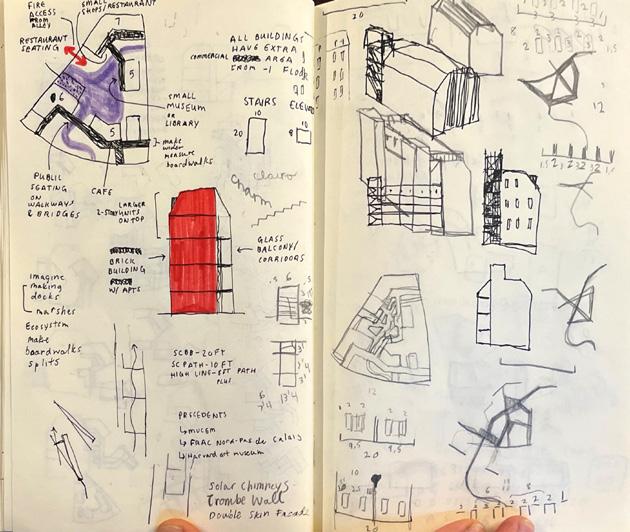 FIRE
ACCESS
FROM
ALLEY
SMALL
SHOPS/RESTAURANT
7
RESTAURANT
SEATING
5
6
5
SMALL
MUSEUM
OR
LIBRARY
make
wider
measure
boardwalks
PUBLIC
SEATING
ON
WALKWAYS
& BRIDGES
CAFE
ALL BUILDINGS
HAVE EXTRA
COMMERCIAL AREA
FROM -1 FLOOR
STAIRS
10
20
8
10
clairo
charm
LARGER
2-STORY UNITS
ON TOP
BRICK
BUILDING
W/ APTS
GLASS
BALCONY/
CORRIDORS
imagine
making
docks
marshes
Ecosystem
make
boardwalks
splits
.5 6 .5
SCBB-20FT
SCPATH-10FT
HIGH LINE-8FT PATH
PLUS
PRECEDENTS
↳ MUCEM
↳ FRAC Nord-Pas de Calais
↳ Harvard art museum
Solar Chimneys-
Trombe Wall
Double Skin Facade
20
8
1.5
12
12
2 2
9.5
20
9.5
10
20